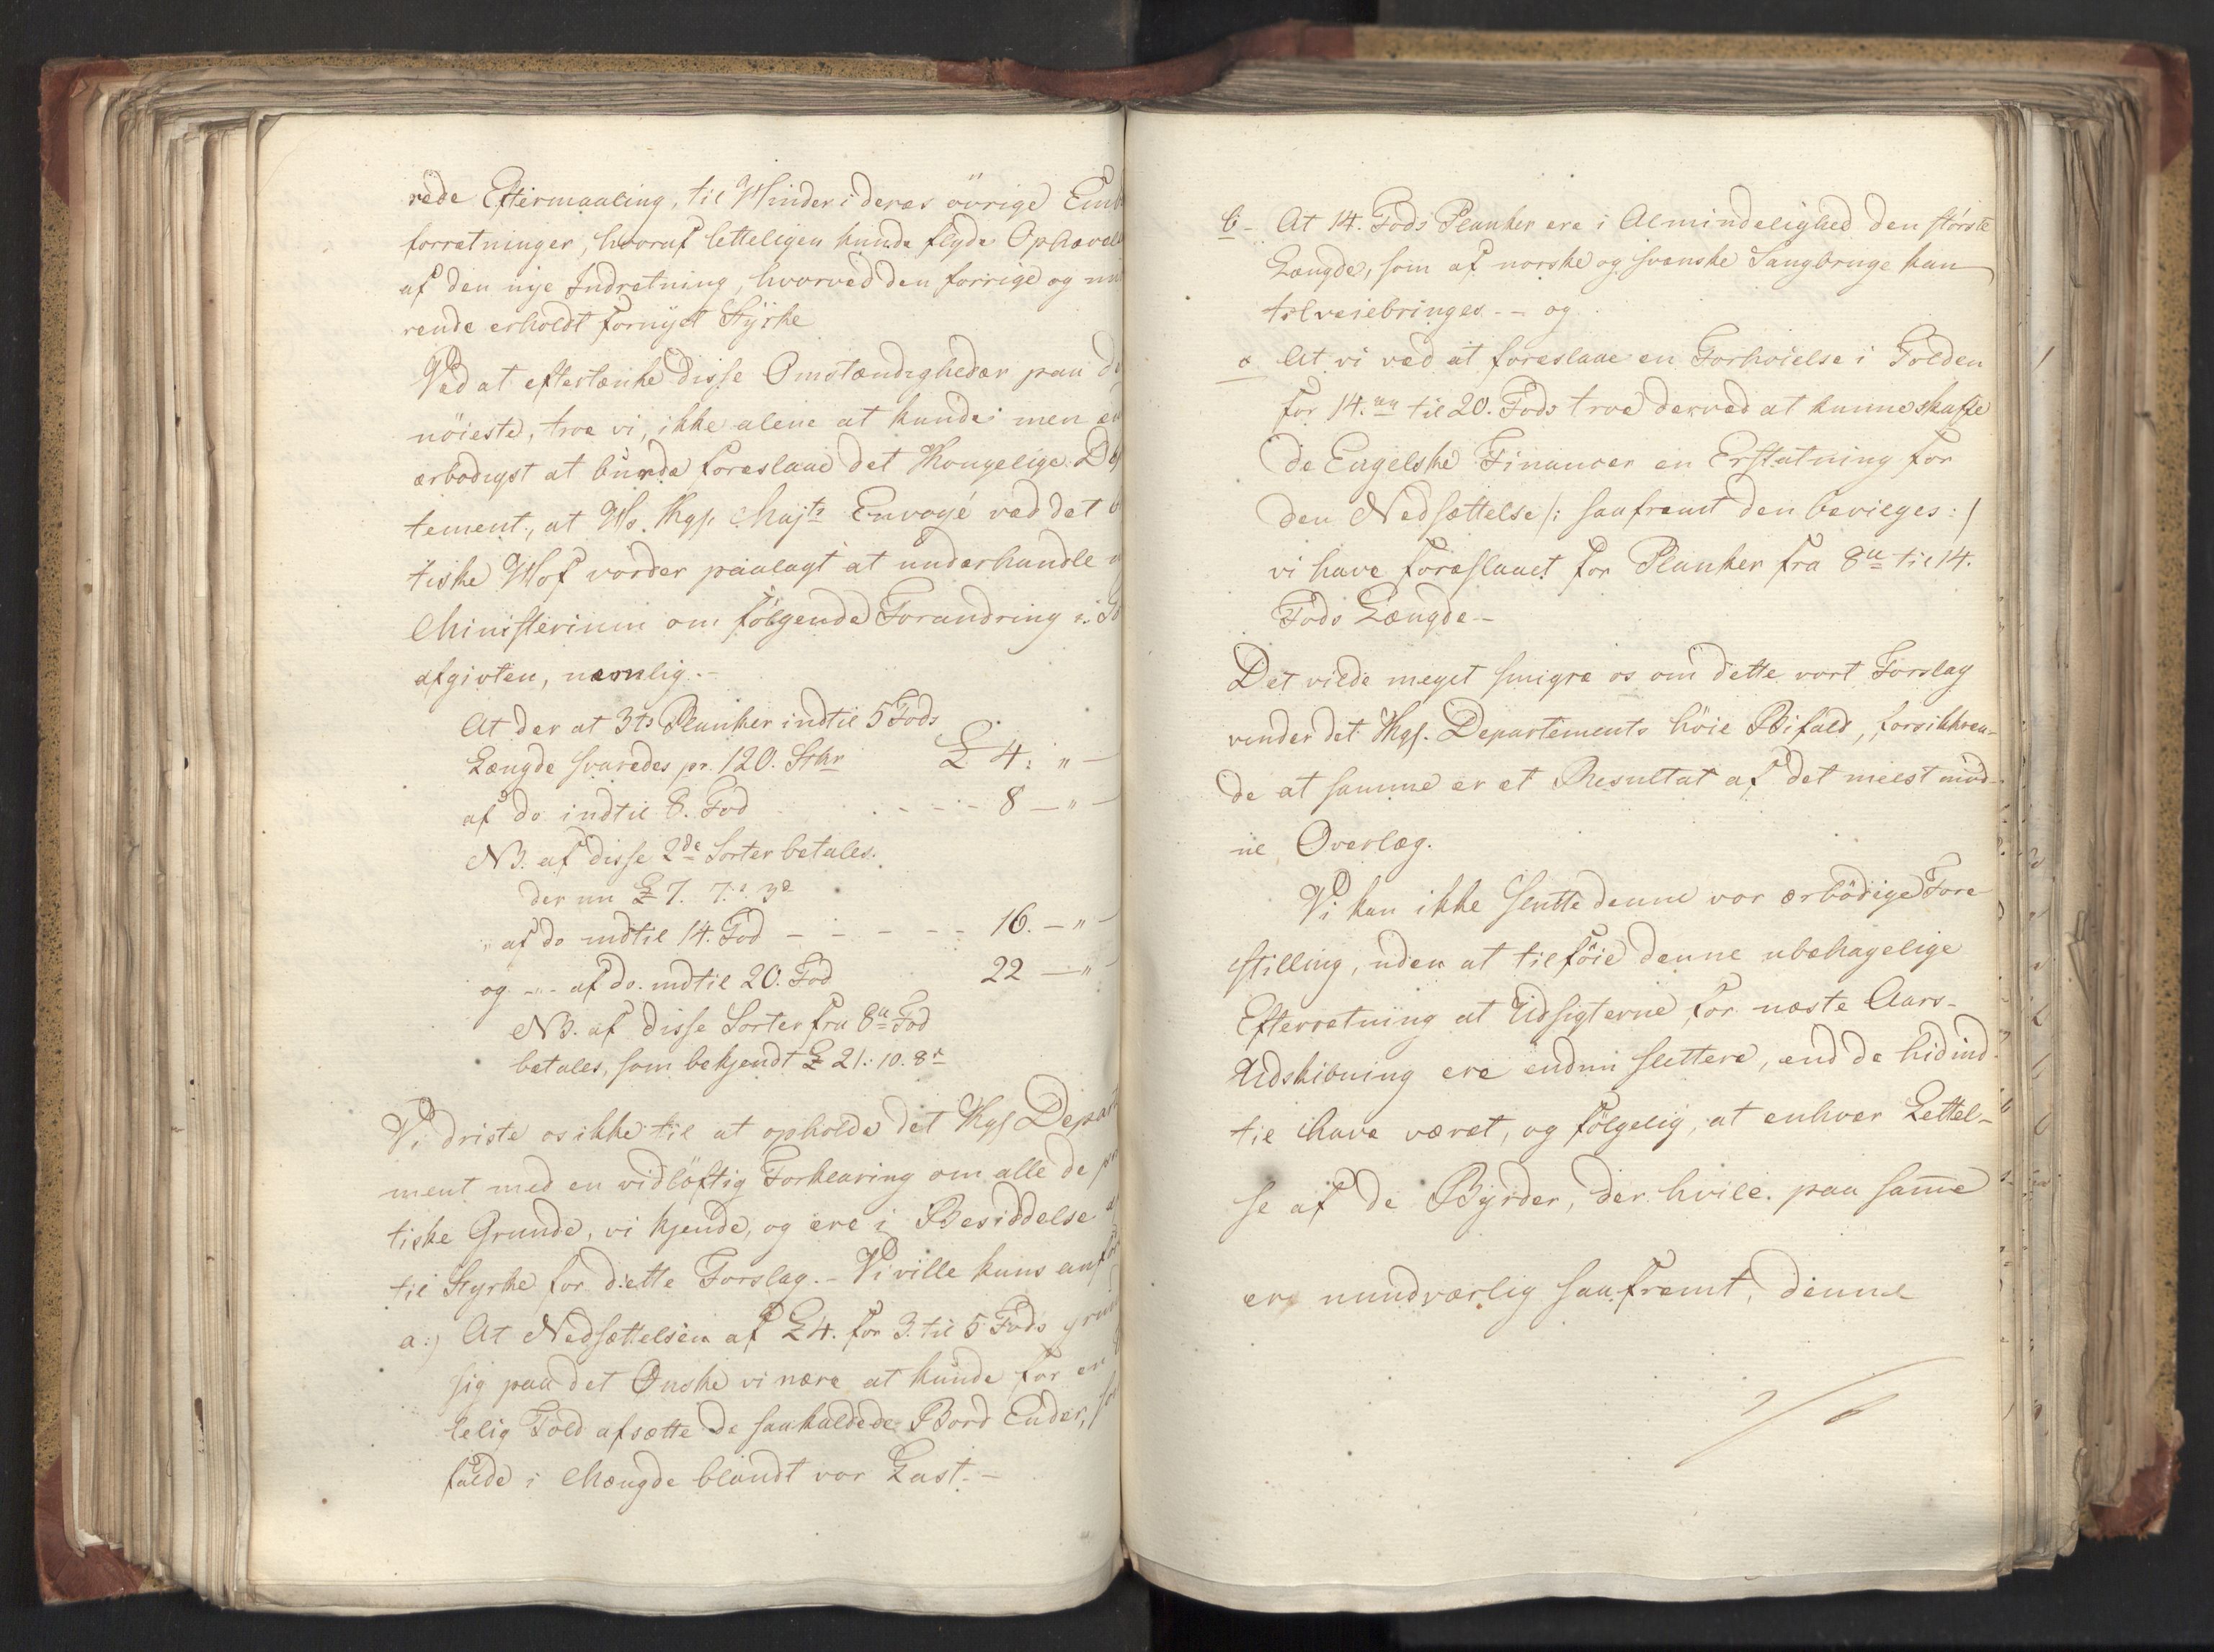 rede Eftermaaling, til Hinder i deres övrige Emb
forretninger, hvoraf letteligen kunde flyde Ophævel
af den nye Indretning, hvorved den forrige og nu
rende erholdt fornyet Styrke
Ved at eftertænke disse Omstændigheder paa d
nöieste, troe vi, ikke alene at kunde men en
ærbodigst at burde foreslaae det Kongelige De
tement, at Hs. Kgl. Majts Envoyé ved det b
tiske Hof vorder paalagt at underhandle
Ministerium om følgende Forandring i To
afgivten, næmlig.-
At der at 3ts Planker indtil 5 Fods
Længde svaredes pr. 120. Stkr £ 4: " -
af do indtil 8. Fod - - - 8 - " -
NB. af disse 2de Sorter betales.
der nu £ 7. 7.s 3d
" af do indtil 14. Fod - - - - - 16. - " -
og - " - af do. indtil 20. Fod 22 - "
NB. af disse Sorter fra 8te Fod
betales, som bekjendt £ 21: 10. 8d
Vi driste os ikke til at opholde det Kgl Depart
ment med en vidløftig Forklaring om alle de pr
tiske Grunde, vi kjende, og ere i Besiddelse a
til Styrke for dette Forslag.- Vi ville kuns anför
a:) At Nedsættelsen af £ 4. for 3. til 5 Fods grun
sig paa det Ønske vi nære at kunde for en
lelig Told afsætte de saakaldede Bord Ender, so
falde i Mængde blandt vor Last.-
b - At 14. Fods Planker ere i Almindelighed den störste
Længde, som af norske og svenske Saugbruge kan
tilveiebringes - - og
c At vi ved at foreslaae en Forhöielse i Tolden
for 14. til 20. Fods troe derved at kunne skaffe
de Engelske Financer en Erstatning for
den Nedsættelse /: saafremt den bevilges :/
vi have foreslaaet for Planker fra 8te til 14.
Fods Længde -
Det vilde meget smigre os om dette vort Forslag
vinder det Kgl. Departements höie Bifald, forsikkren-
de at samme er et Resultat af det meest mod-
ne Overlæg.
Vi kan ikke slutte denne vor ærbödige Fore
stilling, uden at tilföie denne ubehagelige
Efterretning at Udsigterne for næste Aars-
Udskibning ere endnu slettere, end de hidind-
til have været, og fölgelig, at enhver Lettel-
se af de Byrder, der hvile paa samme
er nundværlig saafremt, denne